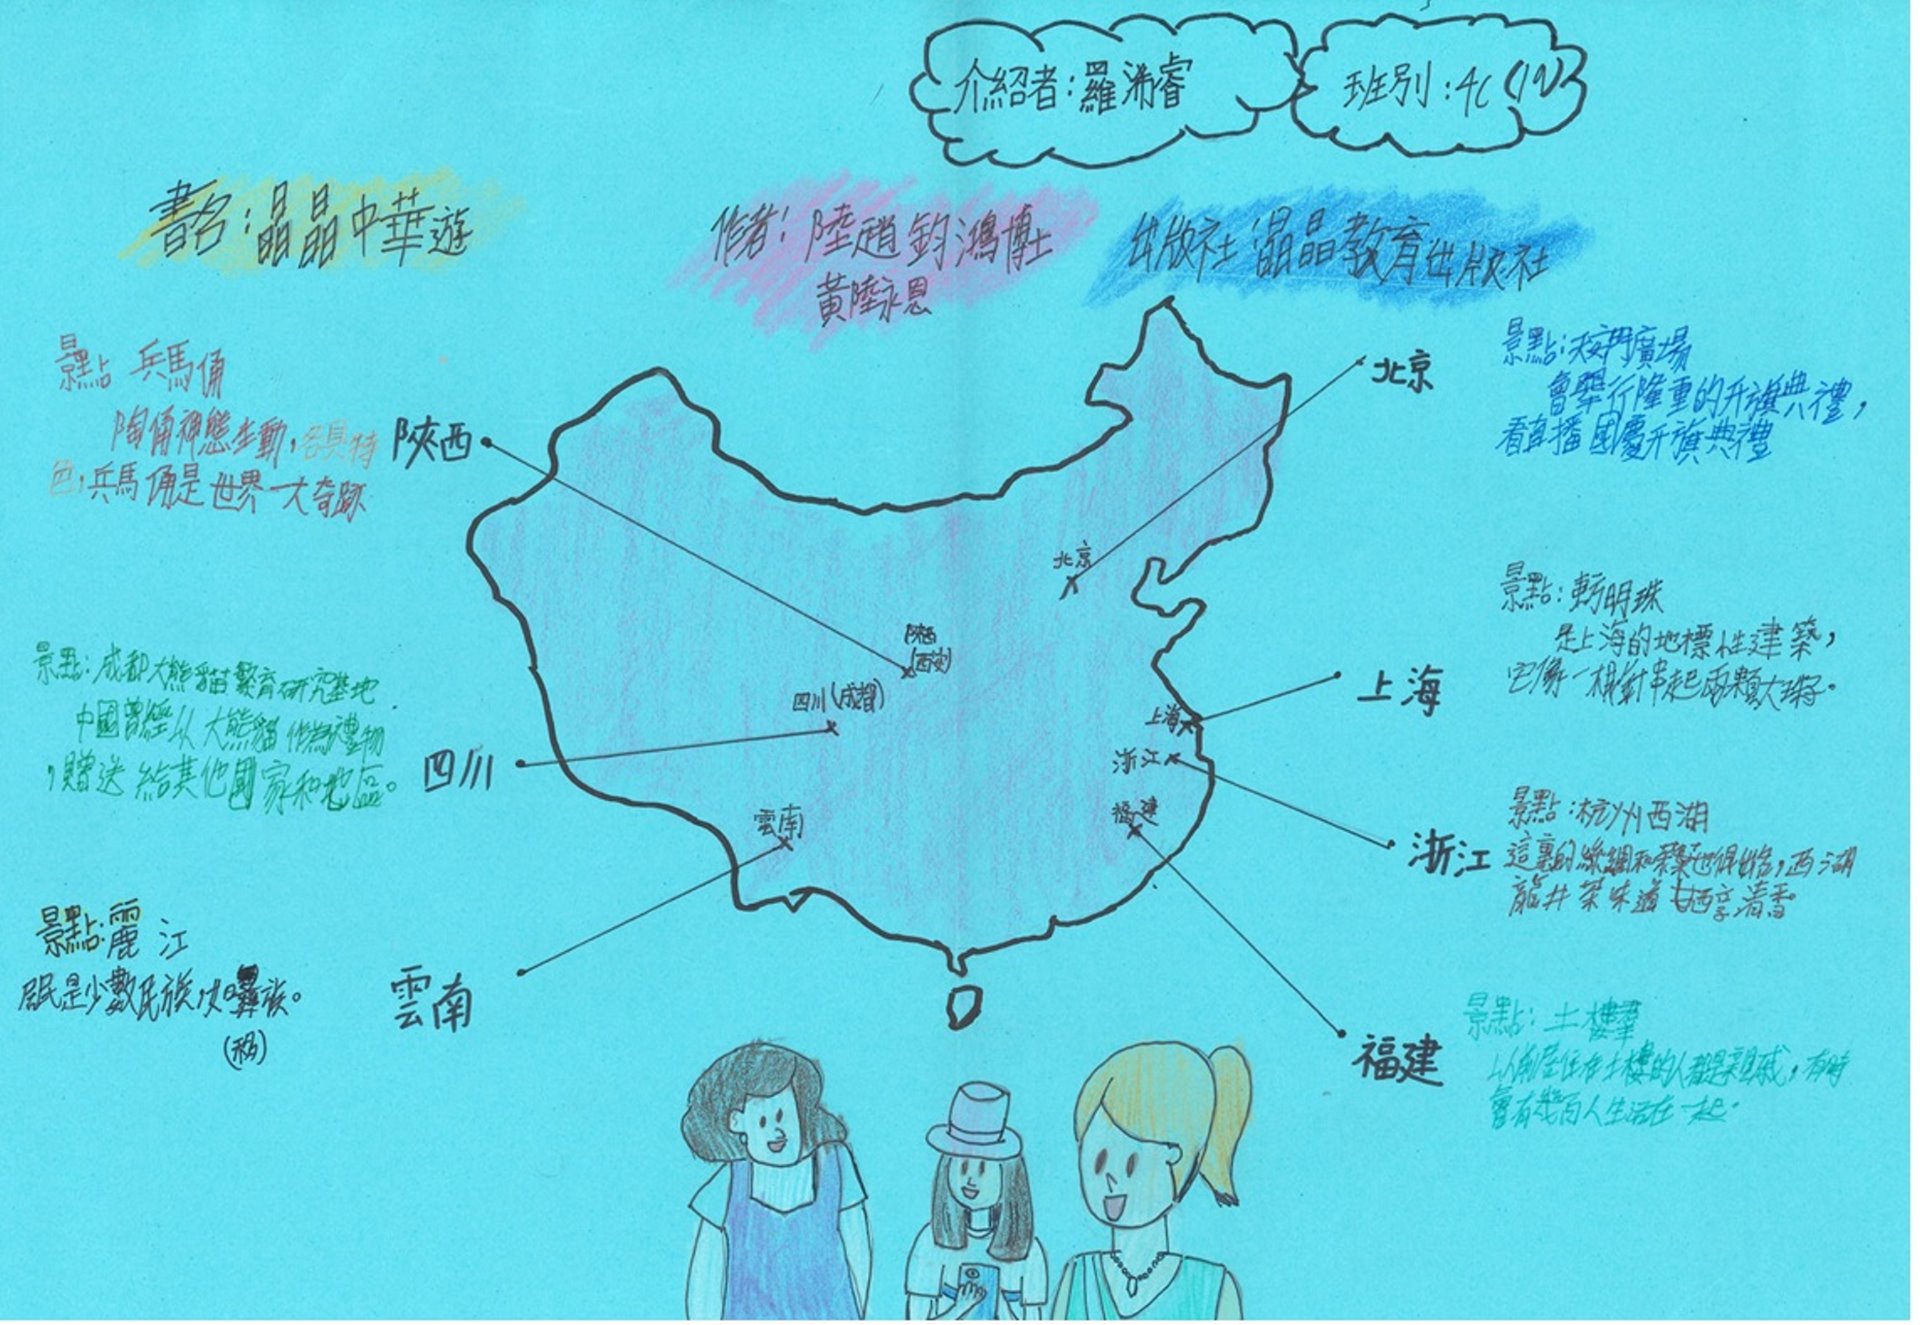 介紹者：羅浠睿
班別：4C(19)
書名：晶晶中華遊
作者：陸趙鈞鴻博士
黃陸永恩
出版社 晶晶教育出版社
景點 兵馬俑
陶俑神態生動，各具特
色，兵馬俑是世界一大奇跡
陝西
北京
景點：天安門廣場
會舉行隆重的升旗典禮，
看直播國慶升旗典禮
北京
陝西
(西安)
四川(成都)
上海
浙江
福建
雲南
景點：成都大熊貓繁育研究基地
中國曾經以大熊貓作為禮物
，贈送給其他國家和地區。
四川
景點：東方明珠
是上海的地標性建築，
它像一根針串起兩顆大珠子。
上海
景點：杭州西湖
這裏的絲綢和茶葉也很出名，西湖
龍井茶味道甘香清香。
浙江
景點：麗江
居民是少數民族，如彝族。
雲南
景點：土樓羣
以前居住在土樓的人都是親戚，有時
會有幾百人生活在一起。
福建